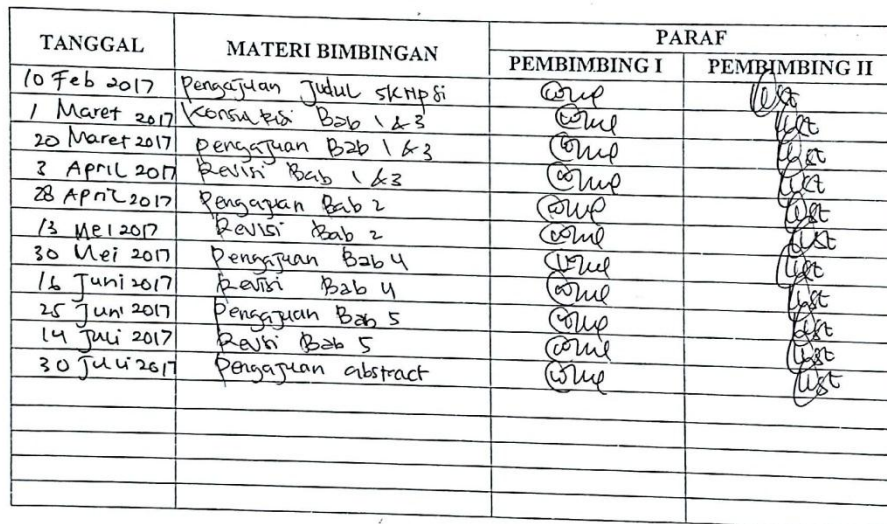 TANGGAL MATERI BIMBINGAN PARAF
PEMBIMBING I PEMBIMBING II
10 Feb 2017 Pengajuan Judul skripsi
1 Maret 2017 Konsultasi Bab 1 & 3
20 Maret 2017 Pengajuan Bab 1 & 3
3 April 2017 Revisi Bab 1 & 3
28 April 2017 Pengajuan Bab 2
13 Mei 2017 Revisi Bab 2
30 Mei 2017 Pengajuan Bab 4
16 Juni 2017 Revisi Bab 4
25 Juni 2017 Pengajuan Bab 5
14 Juli 2017 Revisi Bab 5
30 Juli 2017 Pengajuan abstract